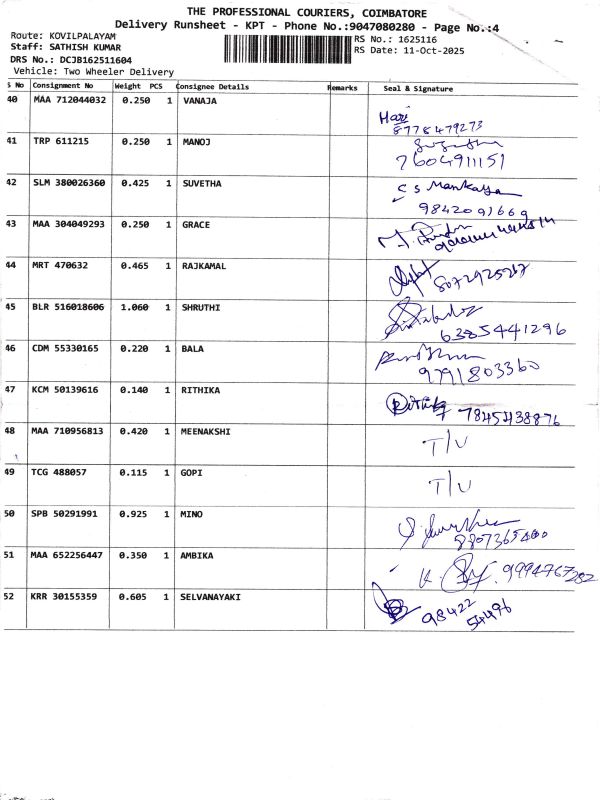 THE PROFESSIONAL COURIERS, COIMBATORE
Delivery Runsheet - KPT - Phone No.:9047080280 - Page No.:4
Route: KOVILPALAYAM
RS No.: 1625116
Staff: SATHISH KUMAR
RS Date: 11-Oct-2025
DRS No.: DCJB162511604
Vehicle: Two Wheeler Delivery
S No Consignment No Weight PCS Consignee Details Remarks Seal & Signature
40 MAA 712044032 0.250 1 VANAJA
Hari
8778479273
41 TRP 611215 0.250 1 MANOJ
7604911151
42 SLM 380026360 0.425 1 SUVETHA
C S
9842091669
43 MAA 304049293 0.250 1 GRACE
44 MRT 470632 0.465 1 RAJKAMAL
45 BLR 516018606 1.060 1 SHRUTHI
6385441296
46 CDM 55330165 0.220 1 BALA
9791803360
47 KCM 50139616 0.140 1 RITHIKA
7845438876
48 MAA 710956813 0.420 1 MEENAKSHI
T/U
49 TCG 488057 0.115 1 GOPI
T/U
50 SPB 50291991 0.925 1 MINO
51 MAA 652256447 0.350 1 AMBIKA
K 9994767282
52 KRR 30155359 0.605 1 SELVANAYAKI
98422
54496